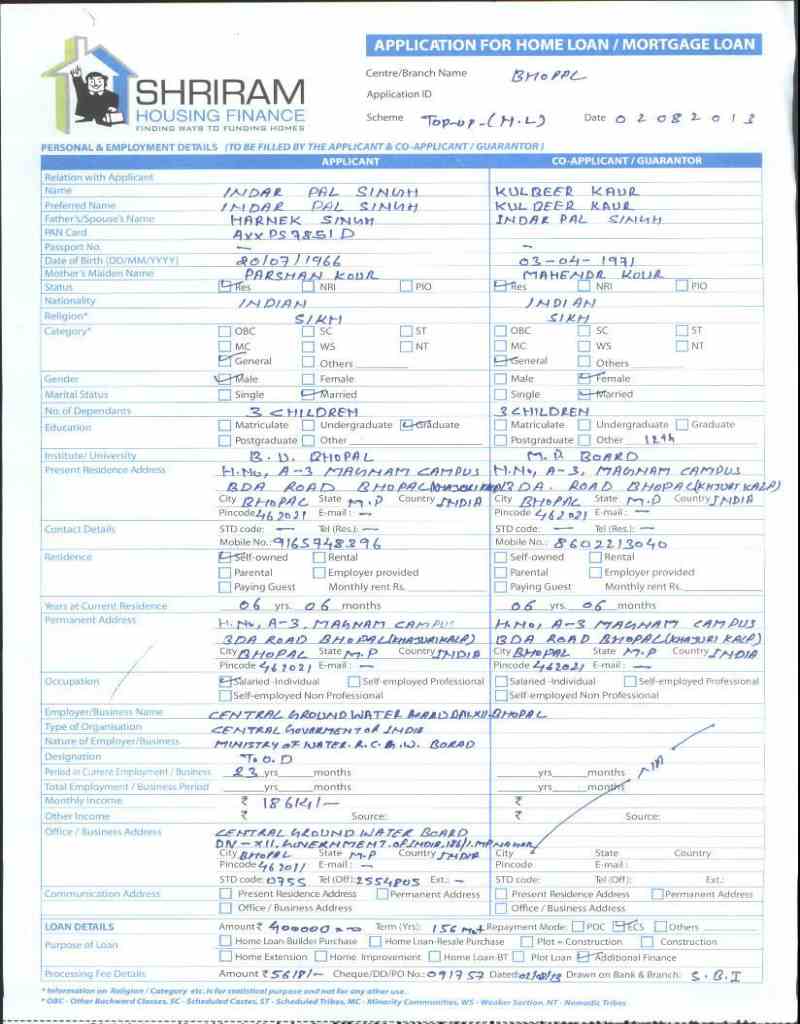 SHRIRAM
HOUSING FINANCE
FINDING WAYS TO FUNDING HOMES
APPLICATION FOR HOME LOAN / MORTGAGE LOAN
Centre/Branch Name BHOPAL
Application ID
Scheme TOP-UP-(M.L) Date 02082013
PERSONAL & EMPLOYMENT DETAILS (TO BE FILLED BY THE APPLICANT & CO-APPLICANT / GUARANTOR)
APPLICANT CO-APPLICANT / GUARANTOR
Relation with Applicant
Name INDAR PAL SINGH KULBEER KAUR
Preferred Name INDAR PAL SINGH KULBEER KAUR
Father's/Spouse's Name HARNEK SINGH INDAR PAL SINGH
PAN Card AXXPS7851D
Passport No. — —
Date of Birth (DD/MM/YYYY) 20/07/1966 03-04-1971
Mother's Maiden Name PARSHAN KOUR MAHENDR KOUR
Status Res NRI PIO Res NRI PIO
Nationality INDIAN INDIAN
Religion* SIKH SIKH
Category* OBC SC ST OBC SC ST
MC WS NT MC WS NT
General Others General Others
Gender Male Female Male Female
Marital Status Single Married Single Married
No. of Dependants 3 CHILDREN 3 CHILDREN
Education Matriculate Undergraduate Graduate Matriculate Undergraduate Graduate
Postgraduate Other Postgraduate Other 12th
Institute/ University B.U. BHOPAL M.P. BOARD
Present Residence Address H.NO, A-3 MAGNAM CAMPUS H.NO, A-3, MAGNAM CAMPUS
BDA ROAD BHOPAL BDA. ROAD BHOPAL(KHAJURI KALP)
City BHOPAL State M.P Country INDIA City BHOPAL State M.P Country INDIA
Pincode 462021 E-mail: — Pincode 462021 E-mail: —
Contact Details STD code: — Tel (Res.): — STD code: — Tel (Res.): —
Mobile No.: 9165948396 Mobile No.: 8602213040
Residence Self-owned Rental Self-owned Rental
Parental Employer provided Parental Employer provided
Paying Guest Monthly rent Rs. Paying Guest Monthly rent Rs.
Years at Current Residence 06 yrs. 06 months 06 yrs. 06 months
Permanent Address H.NO, A-3, MAGNAM CAMPUS H.NO, A-3, MAGNAM CAMPUS
BDA ROAD BHOPAL(KHAJURI KALP) BDA ROAD BHOPAL(KHAJURI KALP)
City BHOPAL State M.P Country INDIA City BHOPAL State M.P Country INDIA
Pincode 462021 E-mail: — Pincode 462021 E-mail: —
Occupation Salaried -Individual Self-employed Professional Salaried -Individual Self-employed Professional
Self-employed Non Professional Self-employed Non Professional
Employer/Business Name CENTRAL GROUND WATER BOARD BHOPAL
Type of Organisation CENTRAL GOVARMENT OF INDIA
Nature of Employer/Business MINISTRY OF NATER. R.C. B.W. BORAD
Designation T.O.D
Period in Current Employment / Business 23 yrs months yrs months
Total Employment / Business Period yrs months yrs months
Monthly Income ₹ 18614/— ₹
Other Income ₹ Source: ₹ Source:
Office / Business Address CENTRAL GROUND WATER BOARD
DN-XII, GOVERNMENT. OF INDIA, 186/1. MP NAGAR
City BHOPAL State M.P Country INDIA City State Country
Pincode 462011 E-mail: — Pincode E-mail:
STD code: 0755 Tel (Off): 2554805 Ext.: — STD code: Tel (Off): Ext.:
Communication Address Present Residence Address Permanent Address Present Residence Address Permanent Address
Office / Business Address Office / Business Address
LOAN DETAILS Amount ₹ 400000 Term (Yrs): 156 Repayment Mode: PDC ECS Others
Purpose of Loan Home Loan Builder Purchase Home Loan-Resale Purchase Plot + Construction Construction
Home Extension Home Improvement Home Loan-BT Plot Loan Additional Finance
Processing Fee Details Amount ₹ 5618/— Cheque/DD/PO No.: 091757 Dated: 02/08/13 Drawn on Bank & Branch: S.B.I
* Information on Religion / Category etc. is for statistical purpose and not for any other use.
* OBC - Other Backward Classes, SC - Scheduled Castes, ST - Scheduled Tribes, MC - Minority Communities, WS - Weaker Section, NT - Nomadic Tribes